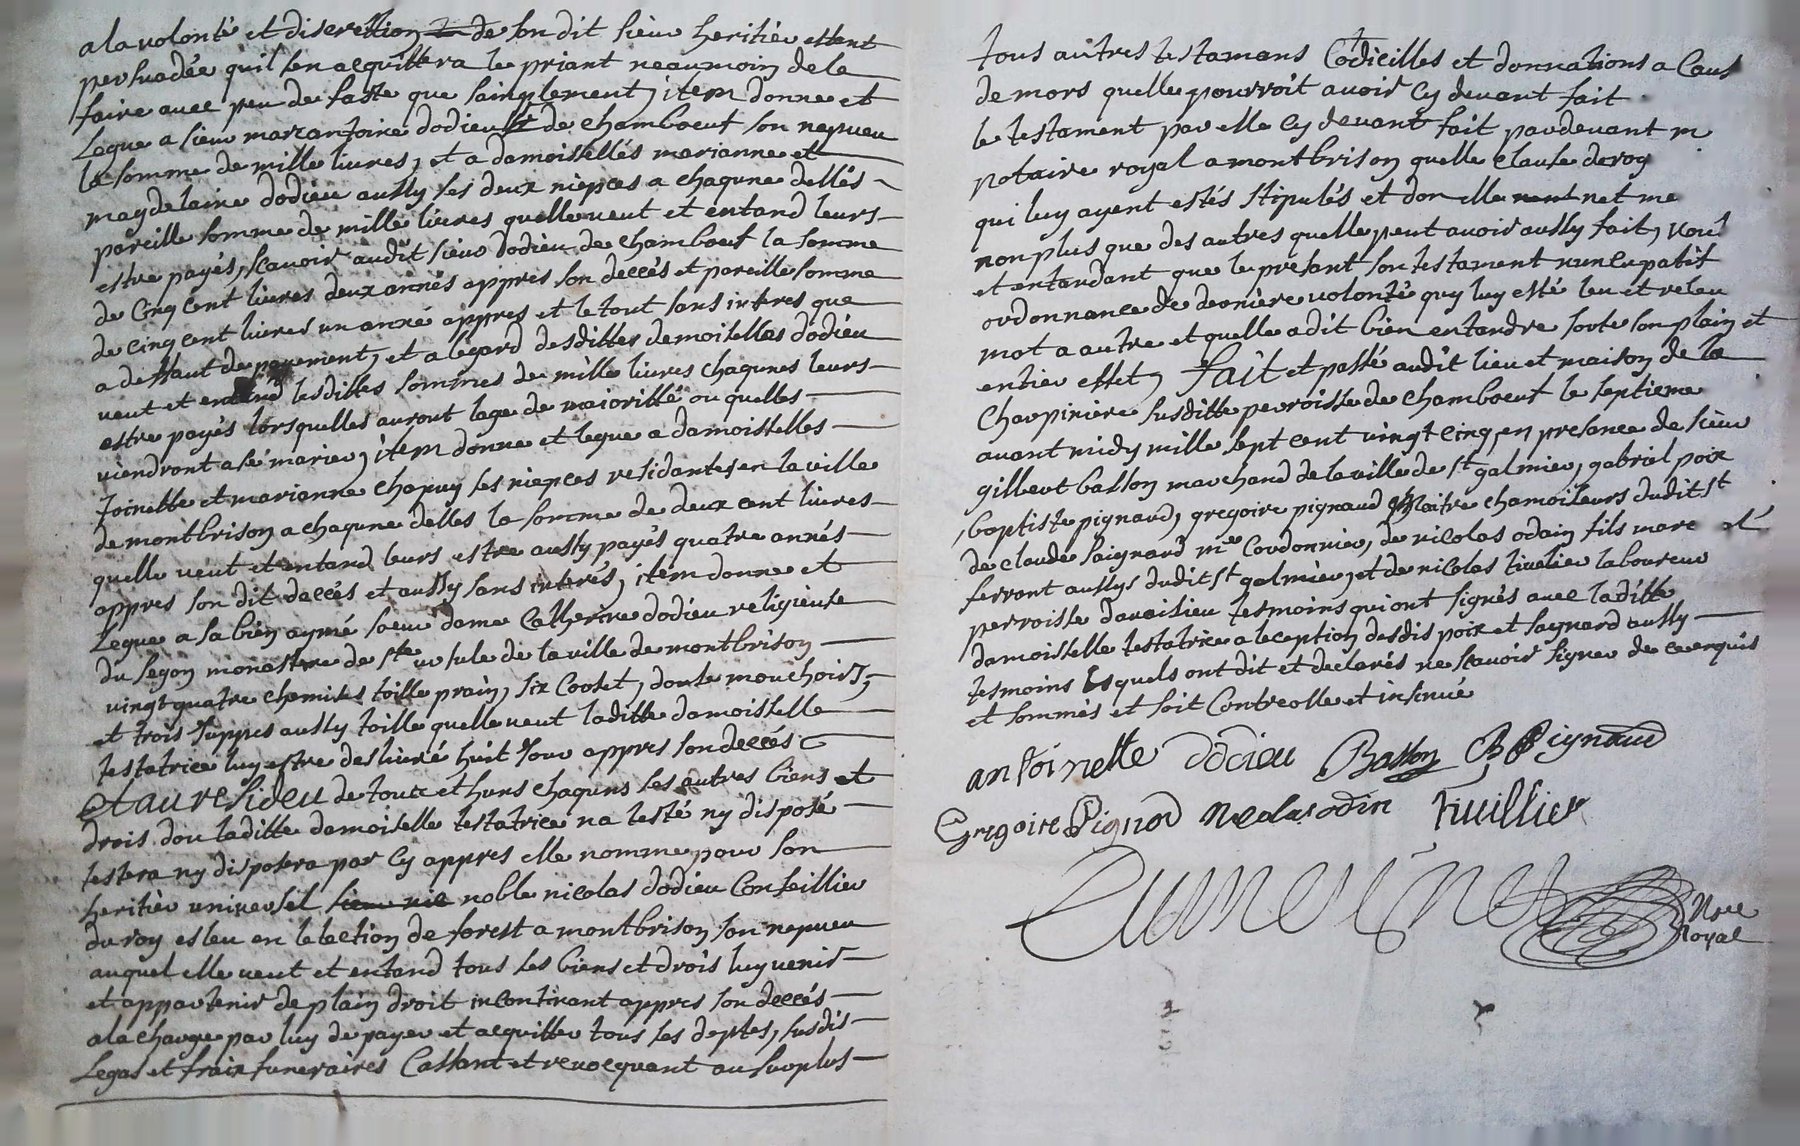 a la volonté et discrettion de son dit sieur heritiér estent
persuadée quil sen acquittera le priant neaumoin de le
faire avec peu de faste que sainplement, item donne et
Legue a sieur marcantoine dodieu de chamboeuf son nepveu
la somme de mille livres, et a damoiselles marianne et
magdelaine dodieu aussy ses deux niepces a chaqune dellés
pareille somme de mille livres quelle veut et entand leurs
estre payés, scavoir audit sieur dodieu de chamboeuf la somme
de cinq cent livres deux annés appres son deccés et pareille somme
de cinq cent livres un anné appres et le tout sans interes que
a deffaut de payement, et a légard desdittes demoiselles dodieu
veut et entand lesdittes sommes de mille livres chaqunes leurs
estre payés lorsquelles auront lage de maioritté ou quelles
viendront a sé marier, item donne et legue a damoisselles
Toinette et marianne chapuy ses niepces residantes en la ville
de montbrison a chaqune delles la somme de deux cent livres
quelle veut et entand leurs estre aussy payés quatre annés
appres son dit deccés et aussy sans interés, item donne et
Legue a sa bien aymé soeur dame Catherine dodieu religieuse
du segon monastere de ste ursule de la ville de montbrison
vingt quatre chemises toille prain, six Coolet, douse mouchoirs,
et trois Juppes aussy toille quelle veut laditte damoisselle
testatrice luy estre deslivré huit Jour appres son deccés
Et au resideu de tout et huns chaquns ses autres biens et
drois dou laditte damoiselle testatrice na testé ny disposé
testera ny disposera par Cy appres elle nomme pour son
heritiér universel sieur nic noble nicolas dodieu Conseillier
du roy esleu en lelection de forest a montbrison son nepveu
auquel elle veut et entand tous ses biens et drois luy venir
et appartenir de plain droit incontinant appres son deccés
a la charge par luy de payer et acquitter tous ses deptes, susdis
Legas et fraix funeraires Cassant et revocquant au surplus
tous autres testamans Codicilles et donnations a Caus
de mors quelle pourroit avoir Cy devant fait
le testament par elle Cy devant fait pardevant m
notaire royal a montbrison quelle clause deroy
qui luy ayent estés stipulés et don elle net me
non plus que des autres quelle peut avoir aussy fait, voul
et entandant que le présant son testament nuncupatif
ordonnance de derniére volonté quy luy esté leu et releu
mot a autre et quelle a dit bien entandre sorte son plain et
entier effet, fait et passé audit lieu et maison de la
Charpiniére susditte perroisse de chamboeuf le septieme
avant midy mille sept cent vingt cinq en presance de sieur
gilbert basson marchand de la ville de st galmier, gabriel poix
baptiste pignard, gregoire pignaud maitre chamoiseurs dudit st
de claude saignard me Cordonnier, de nicolas odain fils marc et
ferront aussys dudit st galmier, et de nicolas tivelier laboureur
perroisse davaisieu tesmoins qui ont signés avec laditte
damoiselle testatrice a leception desdis poix et saignard aussy
tesmoins lesquels ont dit et declarés ne scavoir signer de ce enquis
et sommés et soit Controlle et insinué
antoinette dodieu Basson B Pignaud
Gregoire Pignod Necolas odin Tivillier
Nre
Royal